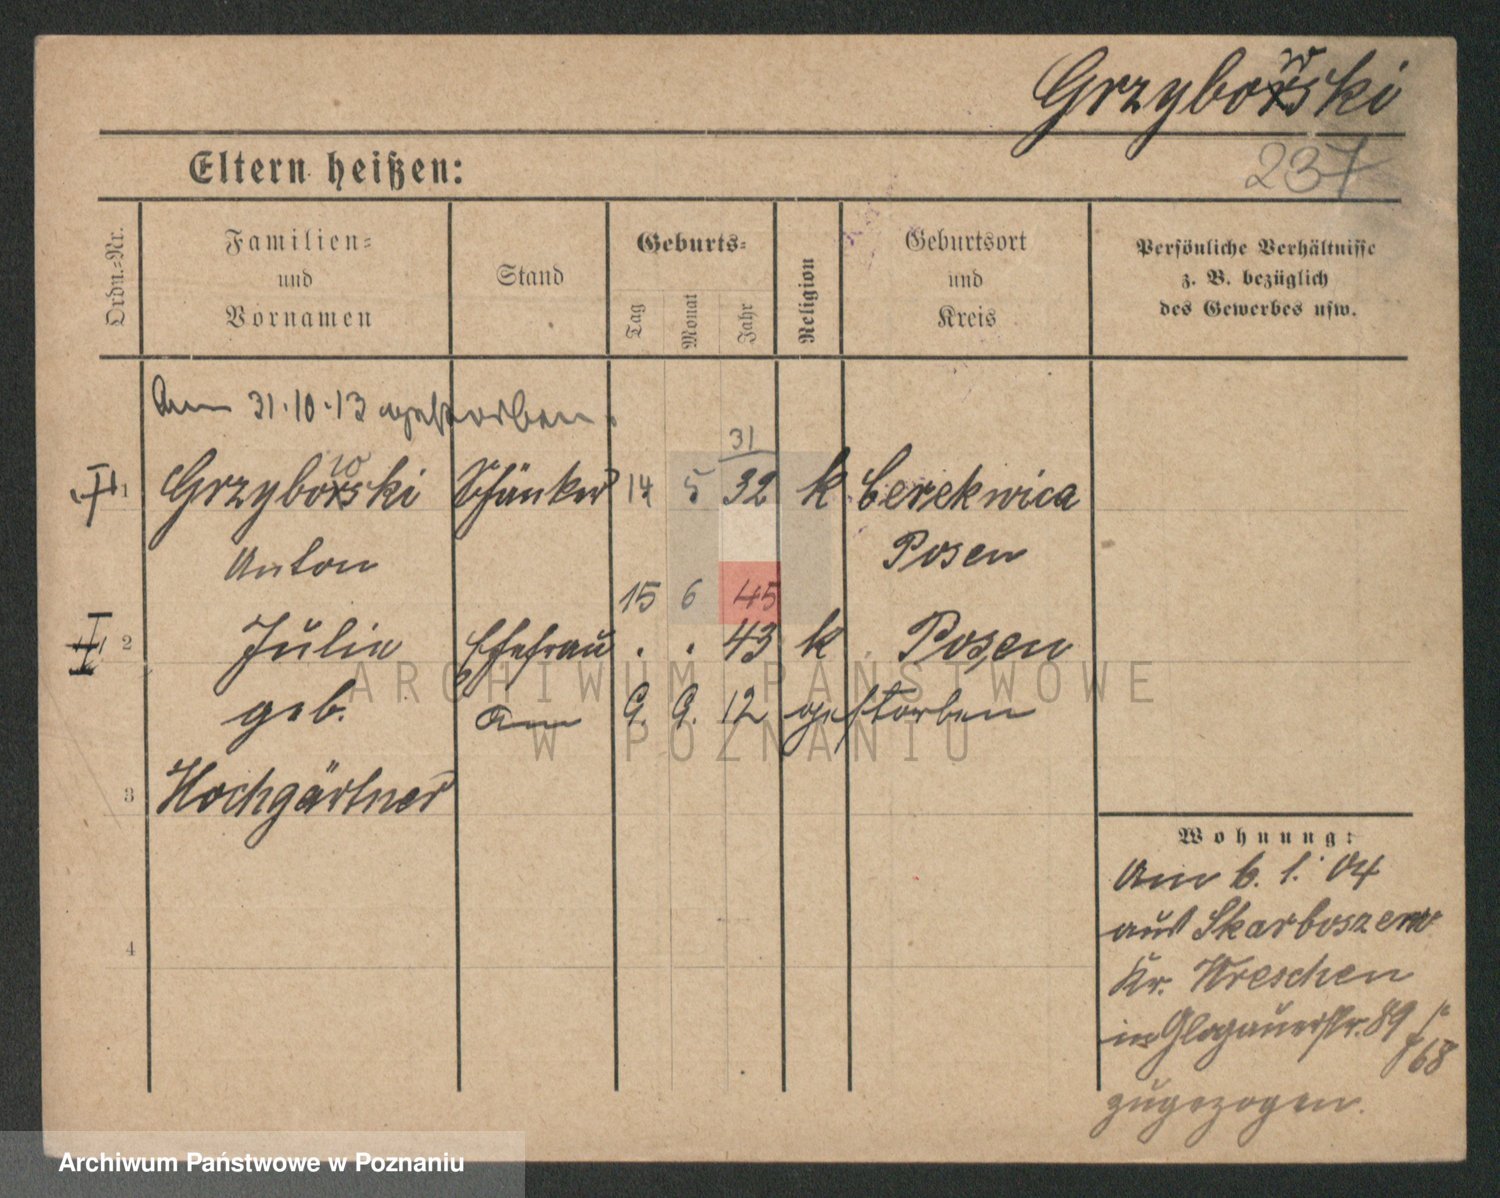 Grzybowski
237
Eltern heißen:
Ordn.-Nr.
Familien-
und
Vornamen
Stand
Geburts-
Tag
Monat
Jahr
Religion
Geburtsort
und
Kreis
Persönliche Verhältnisse
z. B. bezüglich
des Gewerbes usw.
Am 31.10.13 gestorben.
31
I 1 Grzybowski Schänker 14 5 32 k Cerekwica
Anton Posen
15 6 45
II 2 Julie Ehefrau . . 43 k Posen
geb. am 9. 9. 12 gestorben
3 Hochgärtner
4
Wohnung:
Am 6. 1. 04
aus Skarboszewo
Kr. Wreschen
in Glogauerstr. 89
68
zugezogen.
ARCHIWUM PAŃSTWOWE
W POZNANIU
Archiwum Państwowe w Poznaniu